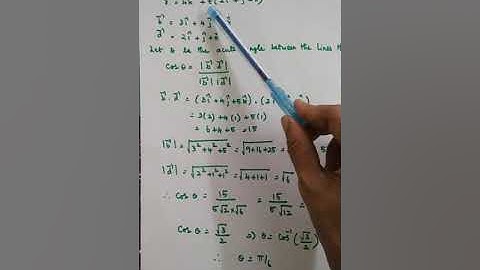 b⃗ = 3î + 4ĵ
d⃗ = 2î + ĵ +
Let θ be the acute angle between the lines
Cos θ = |b⃗ . d⃗| / |b⃗| |d⃗|
b⃗ . d⃗ = (3î + 4ĵ + 5k̂) . (2î
= 3(2) + 4(1) + 5(1)
= 6 + 4 + 5 = 15
|b⃗| = √3²+4²+5² = √9+16+25
|d⃗| = √2²+1²+1² = √4+1+1 = √6
∴ Cos θ = 15 / 5√2 x √6 = 15 / 5√12 =
Cos θ = √3/2 ⇒ θ = Cos⁻¹(√3/2)
∴ θ = π/6